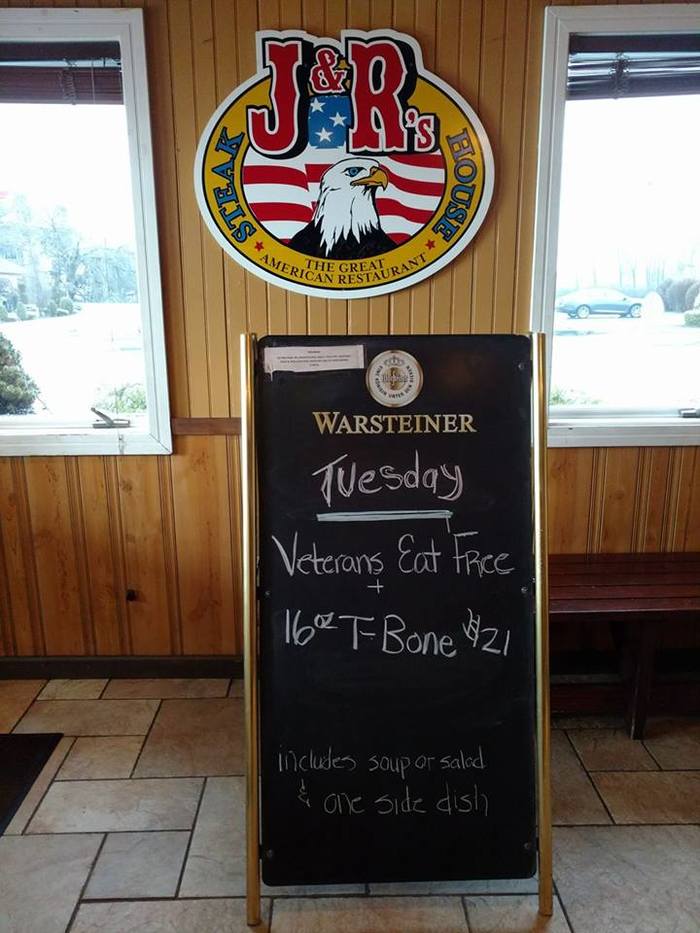 J&R's
STEAK HOUSE
THE GREAT
AMERICAN RESTAURANT
WARSTEINER
Tuesday
Veterans Eat Free
+
16oz T-Bone $21
includes soup or salad
& one side dish